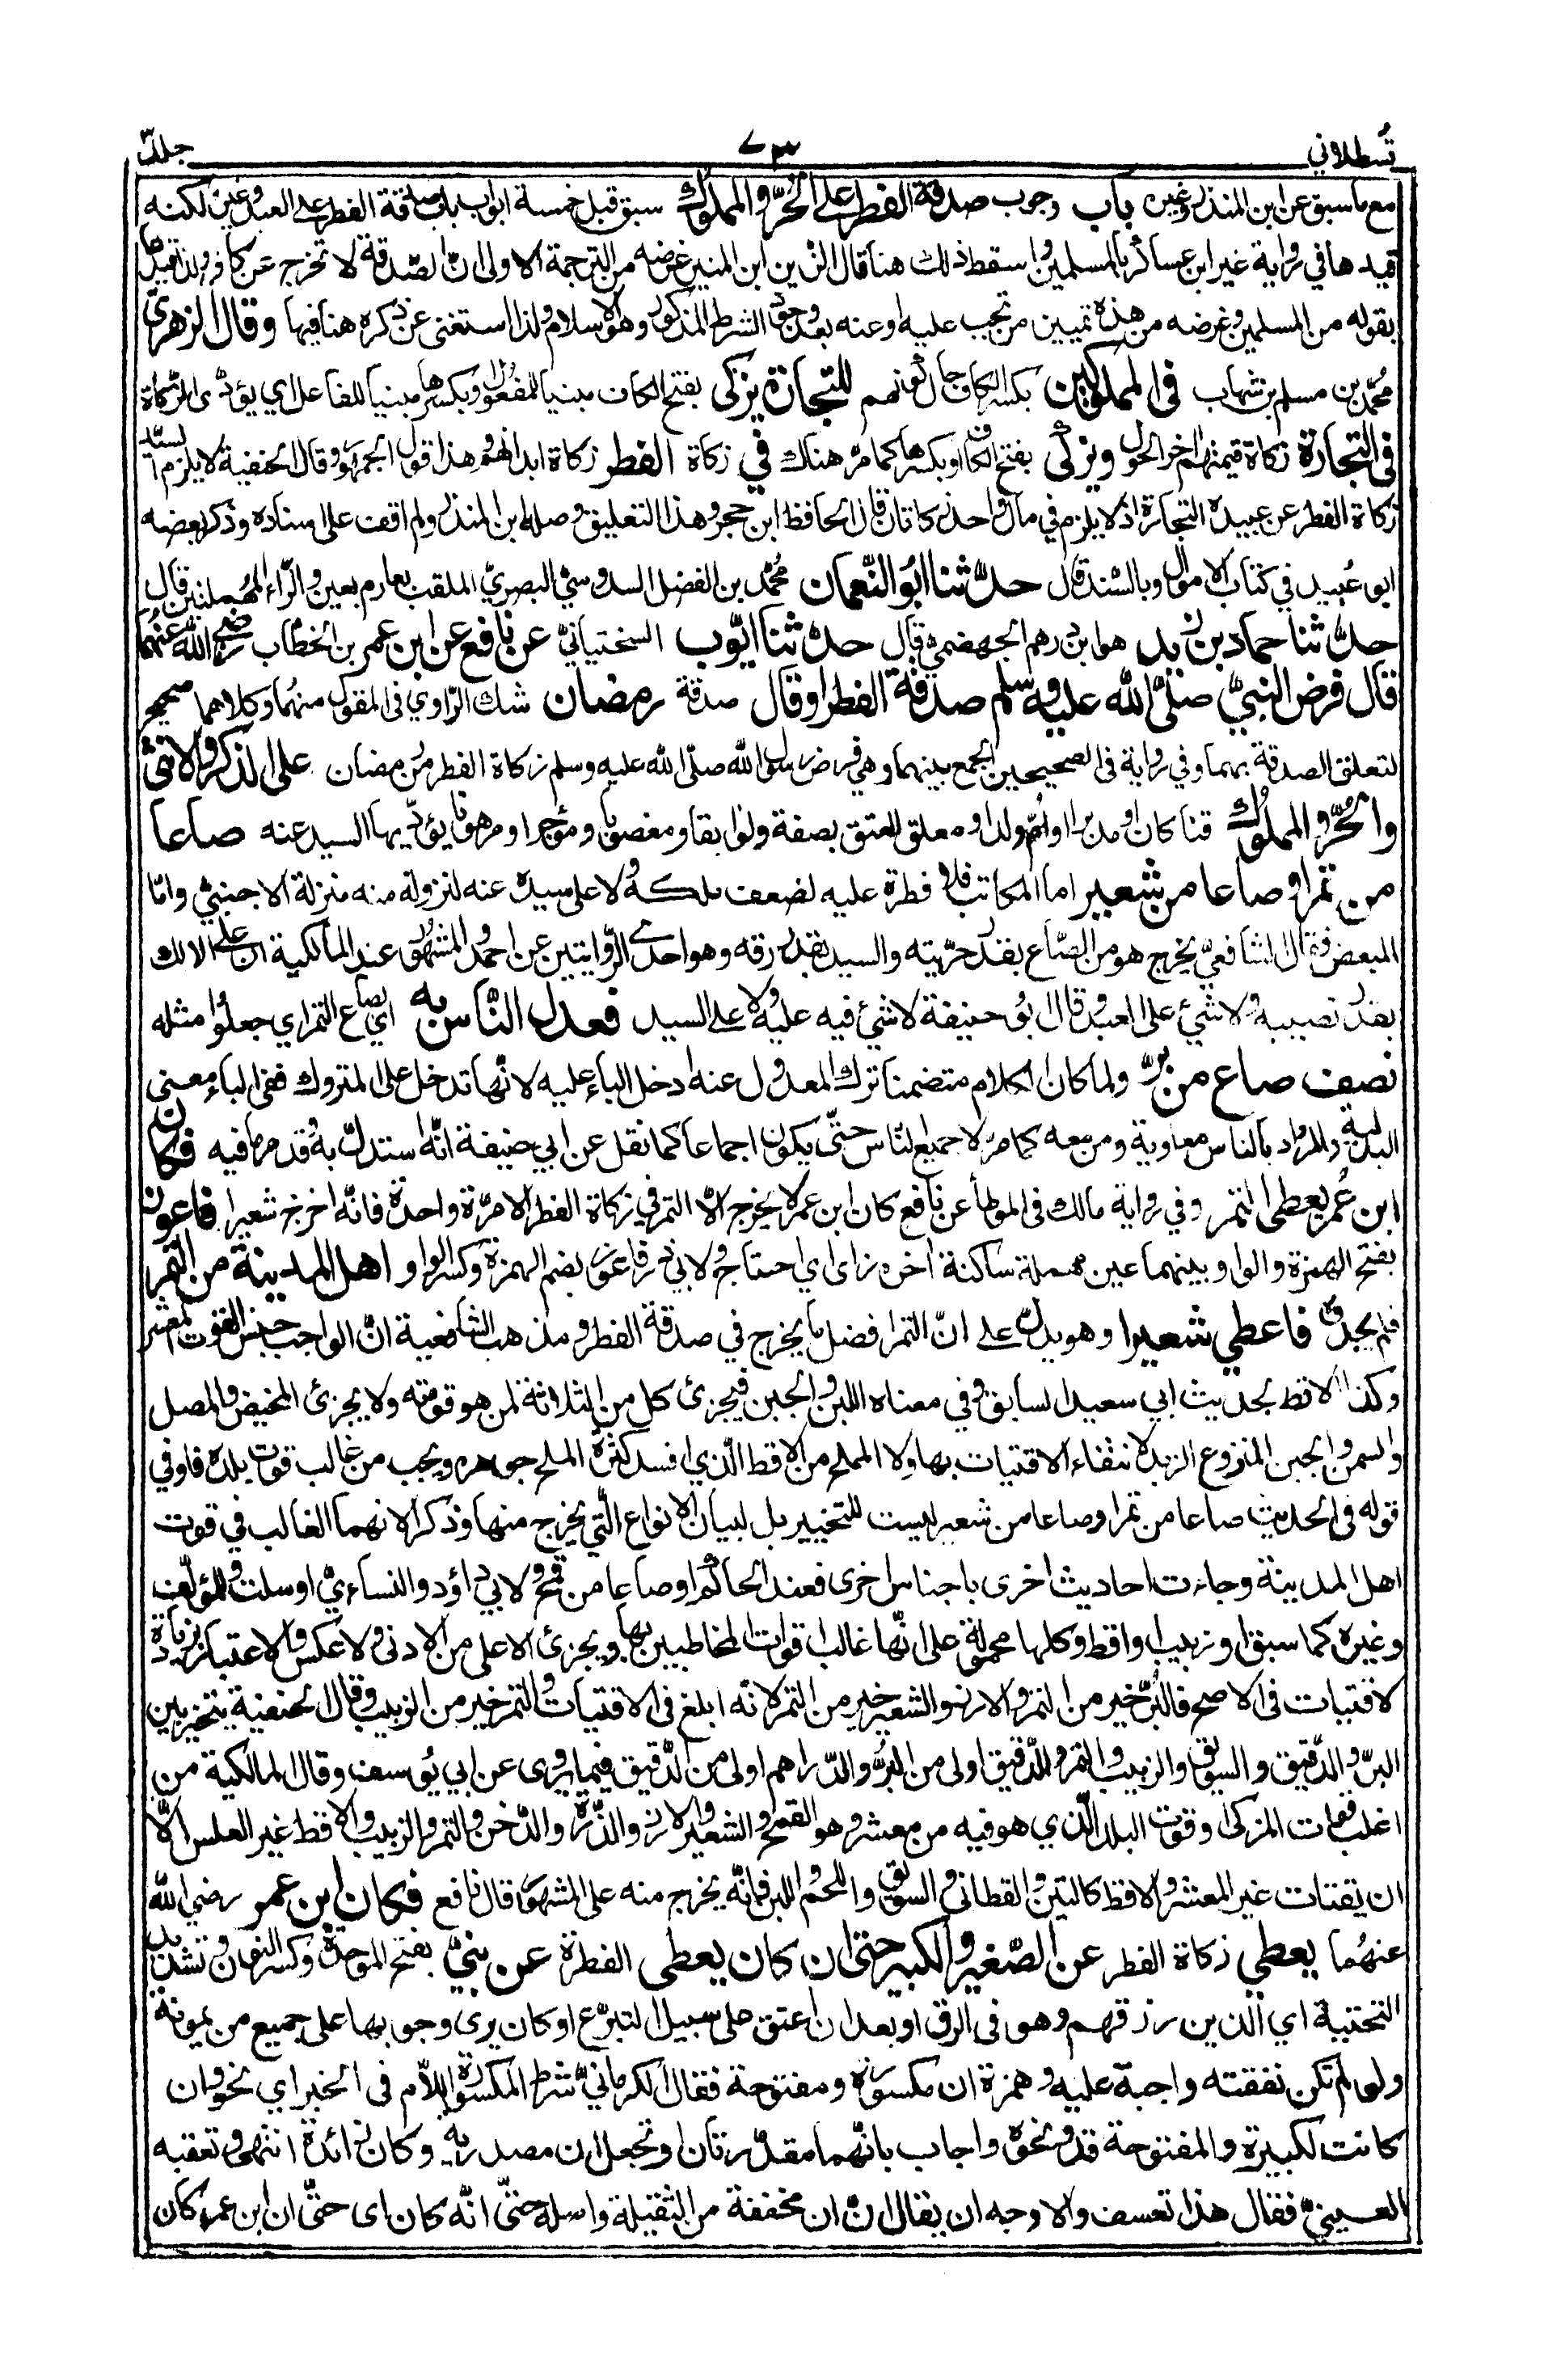 قسطلاني ٧٣ جلد٣
مع ما سبق عن ابن المنذر وغيره باب وجوب صدقة الفطر على الحرّ والمملوك سبق قبل خمسة ابواب باب صدقة الفطر على العبد وغيره لكنه
قيدها في رواية غير ابن عساكر بالمسلمين واسقط ذلك هنا قال الزين ابن المنير غرضه من الترجمة الاولى انّ الصّدقة لا تخرج عن كافر ولذا قيدها
بقوله من المسلمين وغرضه من هذه تمييز من تجب عليه او عنه بعد وجود الشرط المذكور وهو الاسلام ولذا استغنى عن ذكره هنا فيها وقال الزهريّ
محمّد بن مسلم بن شهاب في المملوكين بكسر الكاف حال كونهم للتجارة يزكى بفتح الكاف مبنيا للمفعول وبكسرها مبنيا للفاعل اي يؤدّى الزكاة
في التجارة زكاة قيمتهم اخر الحول ويزكى بفتح الكاف او بكسرها كما مرّ هناك في زكاة الفطر زكاة ابدانهم وهذا قول الجمهور وقال الحنفية لا يلزم السيّد
زكاة الفطر عن عبيدة التجارة اذ لا يلزم في مال واحد زكاتان قال الحافظ ابن حجر وهذا التعليق وصله ابن المنذر ولم اقف على اسناده وذكر بعضه
ابو عُبيد في كتاب الاموال وبالسّند قال حدّثنا ابو النّعمان محمّد بن الفضل السدوسيّ البصريّ الملقب بعارم بعين والرّاء المهملتين قال
حدّثنا حماد بن زيد هو ابن درهم الجهضمي قال حدّثنا ايّوب السختيانيّ عن نافع عن ابن عمر بن الخطّاب رضي الله عنهما
قال فرض النبيّ صلّى الله عليه وسلم صدقة الفطر او قال صدقة رمضان شك الرّاوي في المقول منهما وكلاهما صحيح
لتعلق الصدقة بهما وفي رواية في الصحيحين الجمع بينهما وهي فرض رسول الله صلّى الله عليه وسلم زكاة الفطر من رمضان على الذكر والانثى
والحُرّ والمملوك قنا كان او مدبرا او امّ ولد او معلق العتق بصفة ولو ابقا ومغصوبا ومؤجرا ومرهونا يؤدّيها السيد عنه صاعا
من تمر او صاعا من شعير اما المكاتب فلا فطرة عليه لضعف ملكه ولا على سيده عنه لنزوله منه منزلة الاجنبيّ وامّا
المبعض فقال الشافعيّ يخرج هو من الصّاع بقدر حرّيته والسيد بقدر رقه وهو احدى الرّوايتين عن احمد والمشهور عند المالكية ان على المالك
بقدر نصيبه ولا شيء على العبد وقال ابو حنيفة لا شيء فيه عليه ولا على السيد فعدل النّاس به اي بصاع التمر اي جعلوا مثله
نصف صاع من برّ ولما كان الكلام متضمنا ترك المعدول عنه ادخل الباء عليه لانّها تدخل على المتروك ففي الباء معنى
البدلية والمراد بالناس معاوية ومن معه كما مر لا جميع النّاس حتّى يكون اجماعا كما نقل عن ابي حنيفة انّه استدلّ به وقد مر ما فيه فكان
ابن عُمر يعطي التمر وفي رواية مالك في الموطأ عن نافع كان ابن عمر لا يخرج الّا التمر في زكاة الفطر الا مرّة واحدة فانّه اخرج شعيرا فاعوز
بفتح الهمزة والواو بينهما عين مهملة ساكنة اخره زاي اي احتاج ولابي ذر فاعوز بضم الهمزة وكسر الواو اهل المدينة من التمر
فلم يجدوه فاعطي شعيرا وهو يدلّ على انّ التمر افضل ما يخرج في صدقة الفطر ومذهب الشافعية انّ الواجب جنس القوت المعشر
وكذا الاقط لحديث ابي سعيد السابق وفي معناه اللبن والجبن فيجزئ كل من الثلاثة لمن هو قوته ولا يجزئ المخيض والمصل
والسمن والجبن المنزوع الزبد لانتفاء الاقتيات بها ولا المملح من الاقط الّذي افسد كثرة الملح جوهره ويجب من غالب قوت بلده فاو في
قوله في الحديث صاعا من تمر او صاعا من شعير ليست للتخيير بل لبيان الانواع الّتي يخرج منها وذكرا لانهما الغالب في قوت
اهل المدينة وجاءت احاديث اخرى باجناس اخرى فعند الحاكم او صاعا من قمح ولابي داؤد والنساءيّ او سلت وللمؤلف
وغيره كما سبق او زبيب او اقط وكلها محمولة على انّها غالب اقوات المخاطبين بها ويجزئ الاعلى من الادنى ولا عكس والاعتبار بزيادة
لاقتيات في الاصح فالبُرّ خير من التمر والارز والشعير خير من التمر لانه ابلغ في الاقتيات والتمر خير من الزبيب وقال الحنفية يتخير بين
البرّ والدّقيق والسويق والزبيب والتمر والدّقيق اولى من البُرّ والدّراهم اولى من الدّقيق فيما يروى عن ابي يُوسف وقال المالكية من
اغلب قوت المزكى او قوت البلد الّذي هو فيه من معشر وهو القمح والشعير والارز والذّرة والدّخن والتمر والزبيب والاقط غير العلس الّا
ان يقتات غير المعشر والاقط كالتين والقطاني والسويق واللحم واللبن فانّه يخرج منه على المشهور قال نافع فكان ابن عمر رضي الله
عنهُما يعطي زكاة الفطر عن الصّغير والكبير حتى ان كان يعطى الفطرة عن بنيّ بفتح الموحدة وكسر النون وتشديد
التحتية اي الذين رزقهم وهو في الرق او بعد ان اعتق على سبيل التبرّع او كان يرى وجوبها على جميع من يمونه
ولو لم تكن نفقته واجبة عليه وهمزة ان مكسورة ومفتوحة فقال الكرمانيّ شرط المكسورة اللاّم في الخبر اي نحو وان
كانت لكبيرة والمفتوحة قد ونحوه واجاب بانّهما مقدّرتان او تجعل ان مصدرية وكان زائدة انتهى وتعقبه
العينيّ فقال هذا تعسف والاوجه ان يقال انّ ان مخففة من الثقيلة واسله حتّى انّه كان اى حتّى ان ابن عمر كان